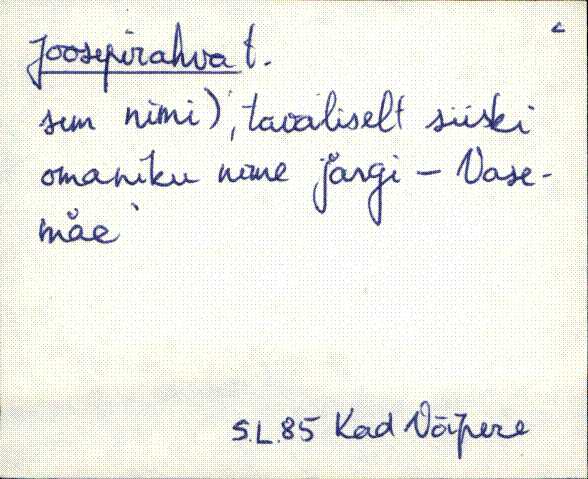 Joosepirahva t.
sem nimi), tavaliselt siiski
omaniku nime järgi – Vase-
mäe
S.L.85 Kad Võipere